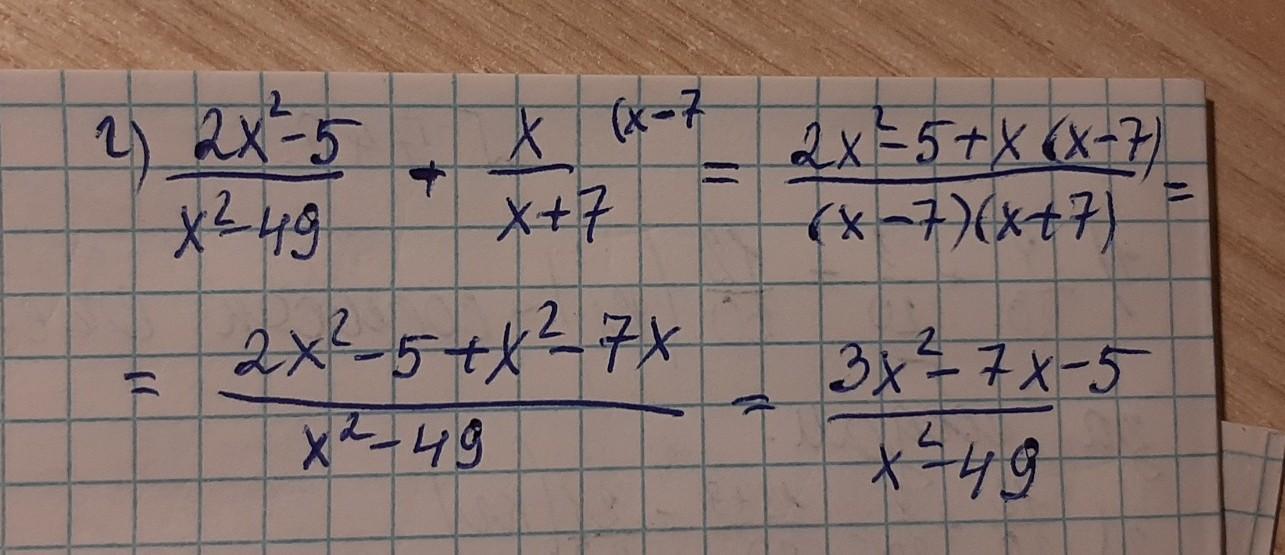 г) (2x²-5)/(x²-49) + x/(x+7) (x-7 = (2x²-5+x(x-7))/((x-7)(x+7)) =
= (2x²-5+x²-7x)/(x²-49) = (3x²-7x-5)/(x²-49)